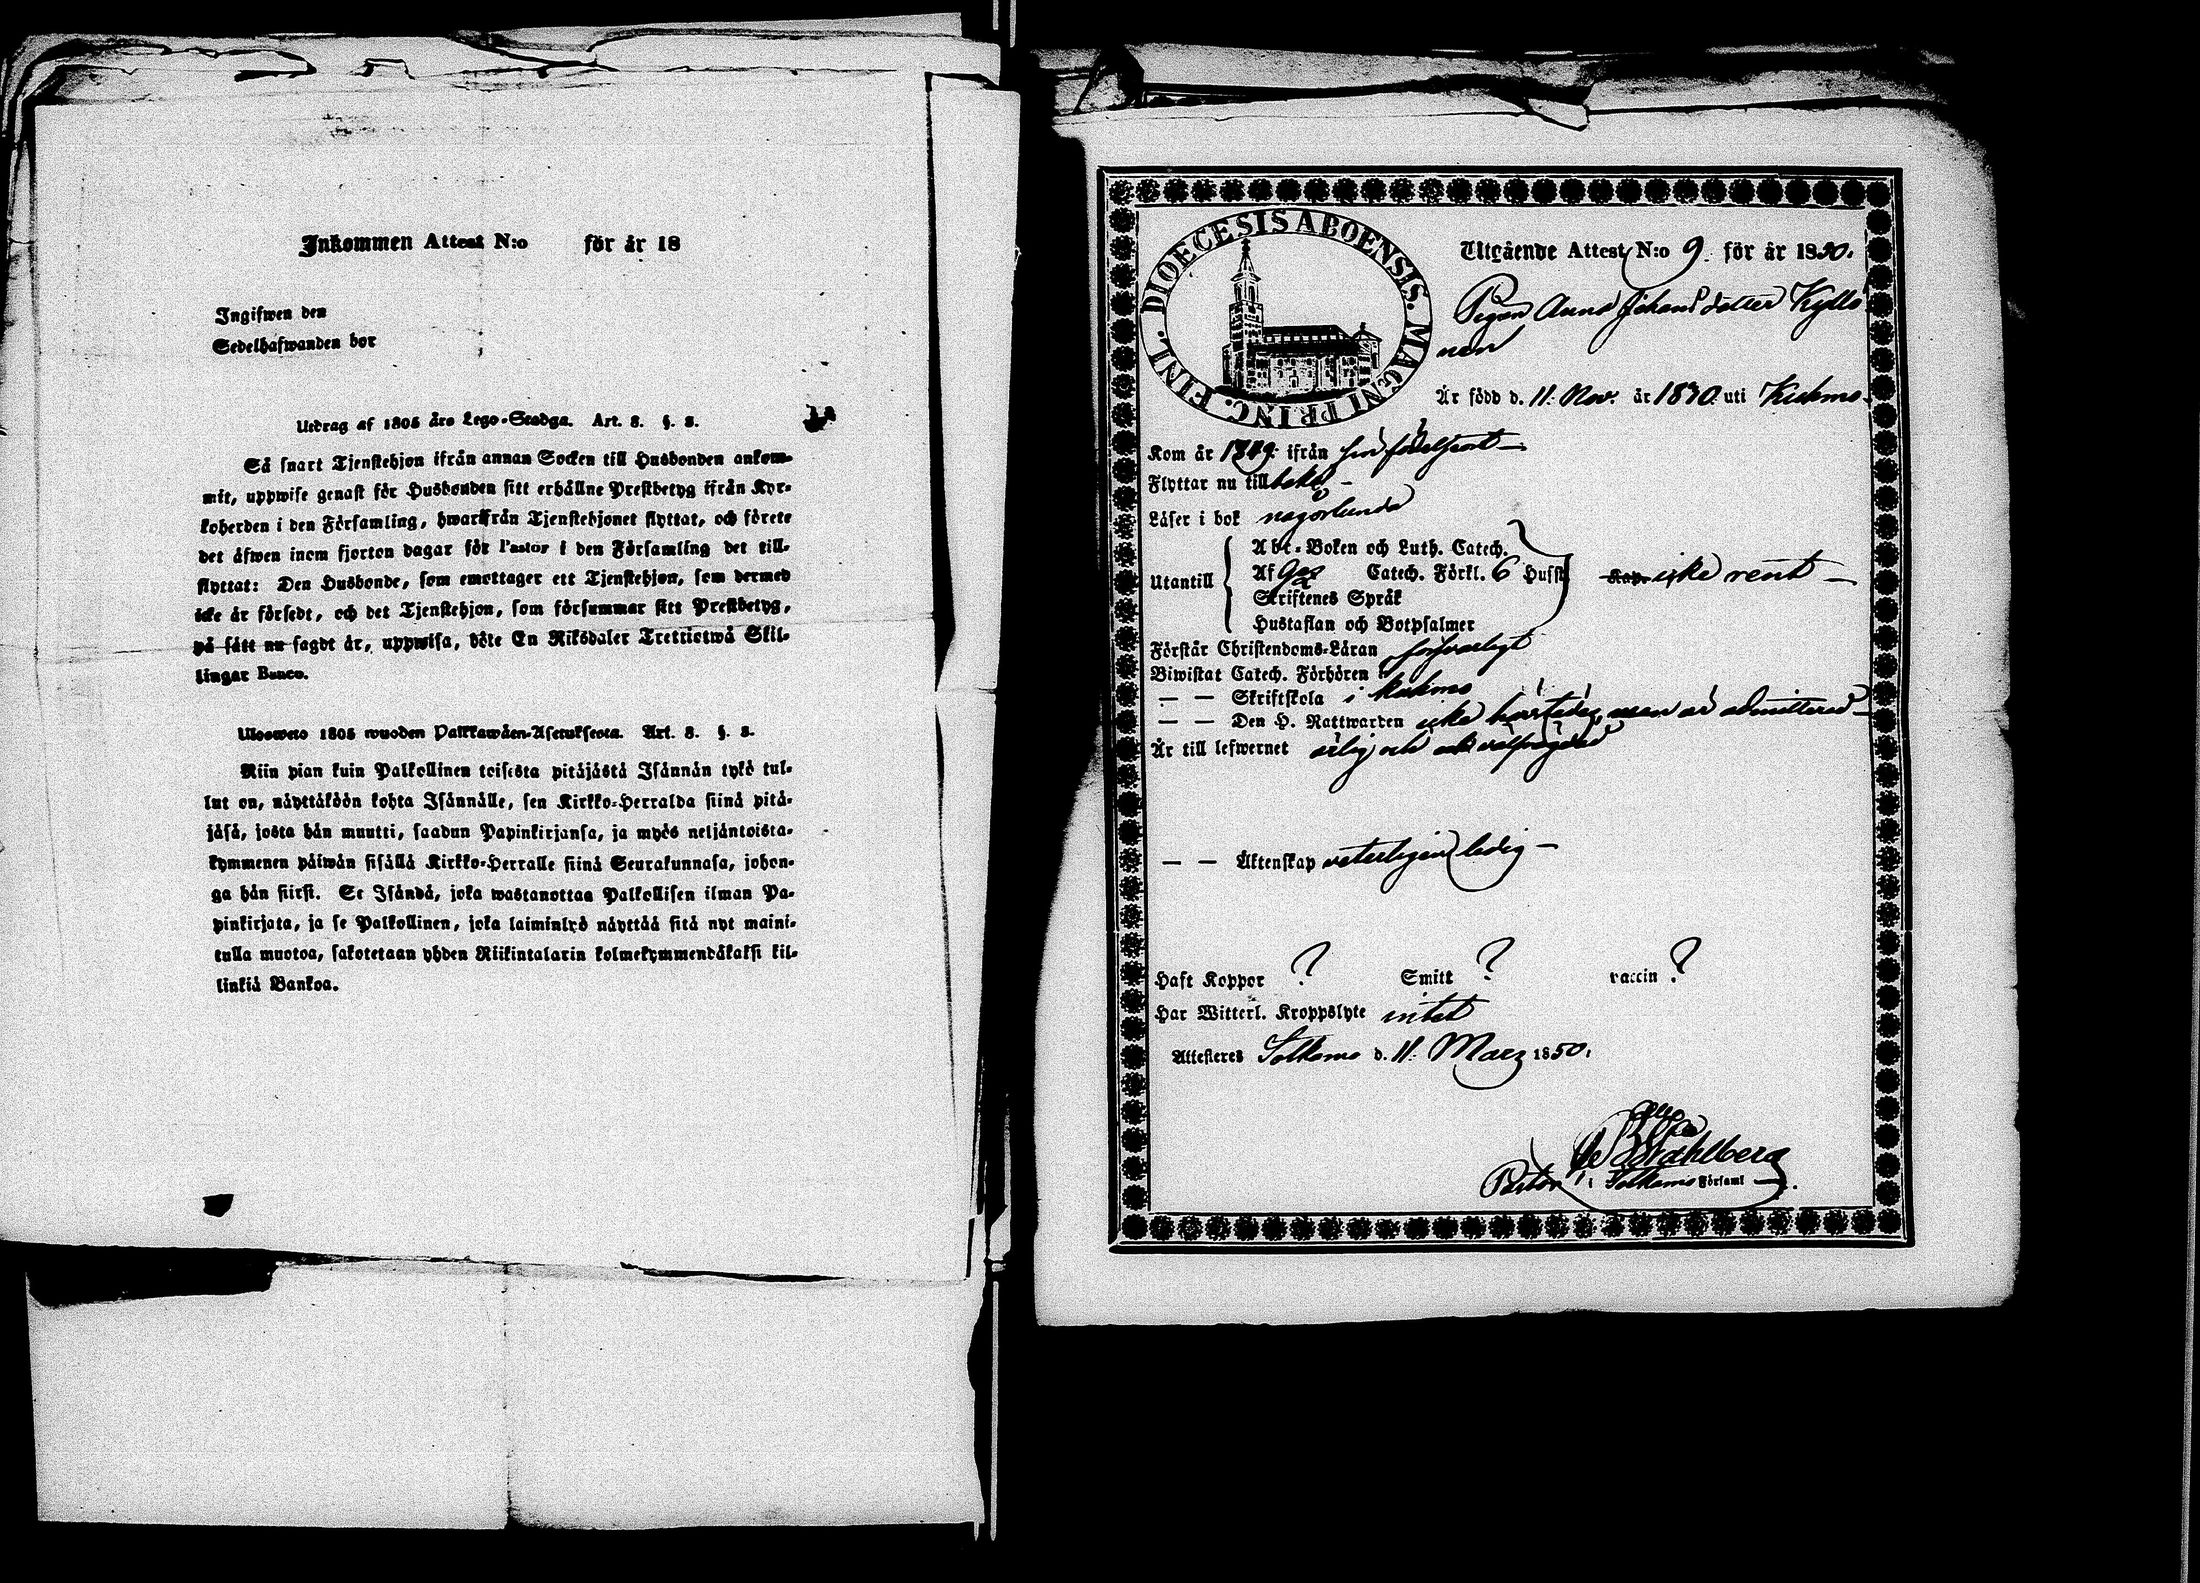 Inkommen Attest N:o för år 18
Ingifwen den
Sedelhafwanden bor
Utdrag af 1805 års Lego-Stadga. Art. 8. §. 8.
Så snart Tjenstehjon ifrån annan Socken till Husbonden ankom-
mit, uppwise genast för Husbonden sitt erhållne Prestbetyg ifrån Kyr-
koherden i den Församling, hwarifrån Tjenstehjonet flyttat, och förete
det äfwen inom fjorton dagar för Pastor i den Församling det till-
flyttat: Den Husbonde, som emottager ett Tjenstehjon, som dermed
icke är försedt, och det Tjenstehjon, som försummar sitt Prestbetyg,
på sätt nu sagdt är, uppwisa, böte En Riksdaler Trettiotwå Skil-
lingar Banco.
Uloswetto 1805 wuoden Palkkawäen-Asetuksesta. Art. 8. §. 8.
Niin pian kuin Palkollinen toisesta pitäjästä Isännän tykö tul-
lut on, näyttäköön kohta Isännälle, sen Kirkko-Herralda siinä pitä-
jäsä, josta hän muutti, saadun Papinkirjansa, ja myös neljäntoista-
kymmenen päiwän sisällä Kirkko-Herralle siinä Seurakunnasa, johon-
ga hän siirsi. Se Isändä, joka wastanottaa Palkollisen ilman Pa-
pinkirjata, ja se Palkollinen, joka laiminlyö näyttää sitä nyt maini-
tulla muotoa, sakotetaan yhden Riikintalarin kolmekymmendäkaksi kil-
linkiä Bankoa.
DIOECESIS ABOENSIS. MAGNI PRINC. FINL.
Utgående Attest N:o 9 för år 1850.
Pigan Anna Johansdotter Kyllö
nen
Är född d. 11 Nov. år 1830 uti Kuhmo
Kom år 1849 ifrån sin födelseort
Flyttar nu tillbaka
Läser i bok någorlunda
Utantill
Abc-Boken och Luth. Catech.
Af Catech. Förkl. 6 Hufst icke rent
Skriftenes Språk
Hustaflan och Botpsalmer
Förstår Christendoms-Läran försvarligt
Biwistat Catech. Förhören
— — Skriftskola i Kuhmo
— — Den H. Nattwarden icke härstädes, men är admitterad
Är till lefwernet ärlig och välfrägdad
— — Äktenskap veterligen ledig
Haft Koppor ? Smitt ? vaccin ?
Har Witterl. Kroppslyte intet
Attesteras Sotkamo d. 11 Marz 1850.
Stahlberg
Pastor i Sotkamo Församl